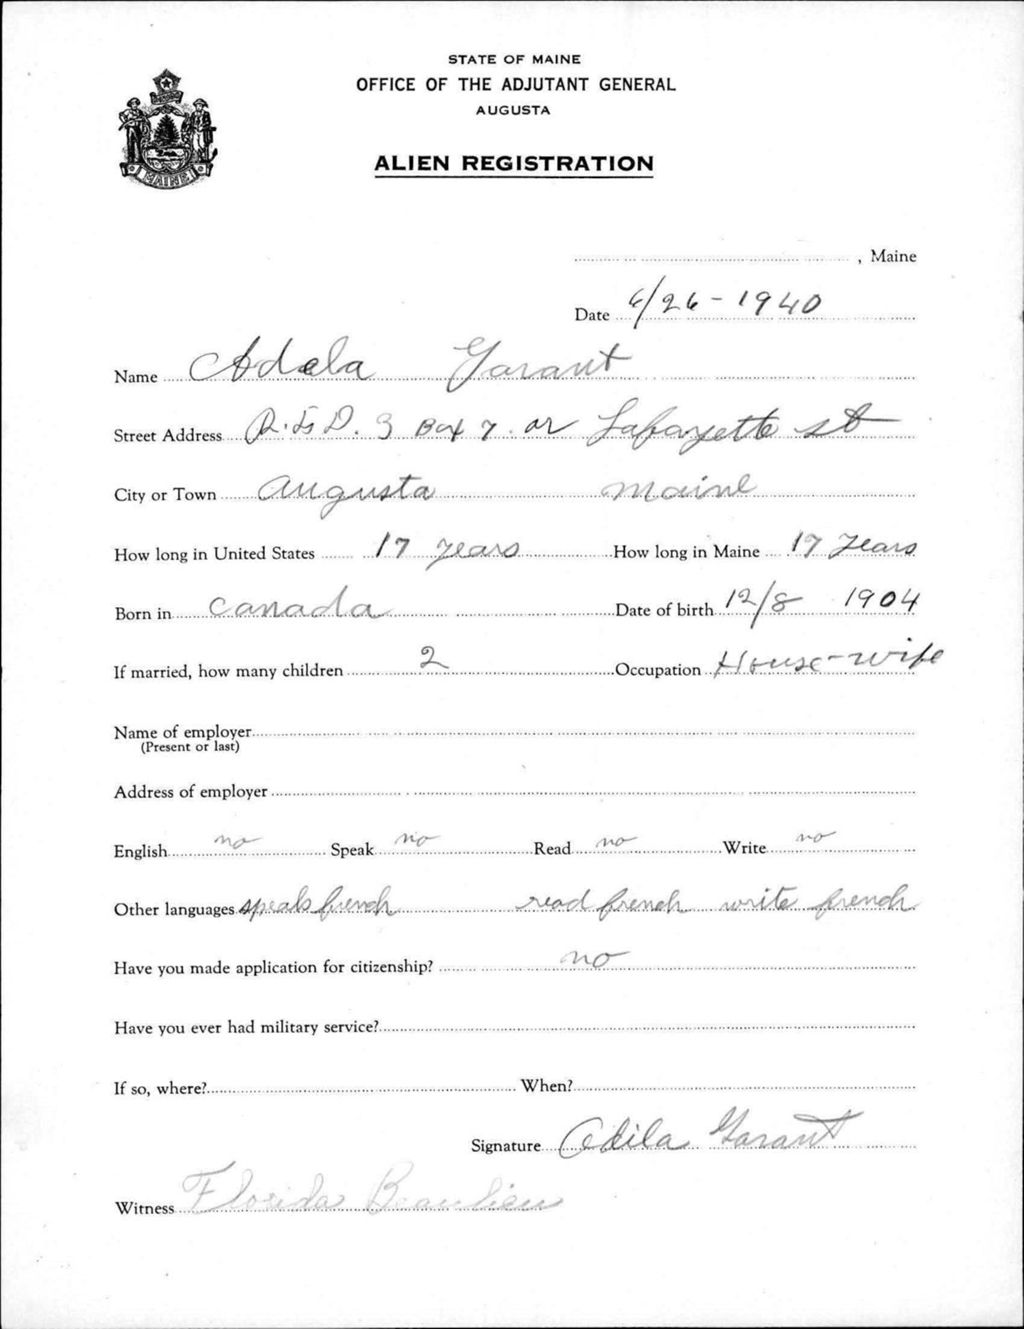 STATE OF MAINE
OFFICE OF THE ADJUTANT GENERAL
AUGUSTA
ALIEN REGISTRATION
MAINE
, Maine
Date 6/26-1940
Name Adela Garant
Street Address R.F.D. 3 Box 7 or Lafayette st
City or Town Augusta Maine
How long in United States 17 years How long in Maine 17 Years
Born in Canada Date of birth 12/8 1904
If married, how many children 2 Occupation House-wife
Name of employer
(Present or last)
Address of employer
English no Speak no Read no Write no
Other languages speaks french read french write french
Have you made application for citizenship? no
Have you ever had military service?
If so, where? When?
Signature Adila Garant
Witness Florida Beaulieu